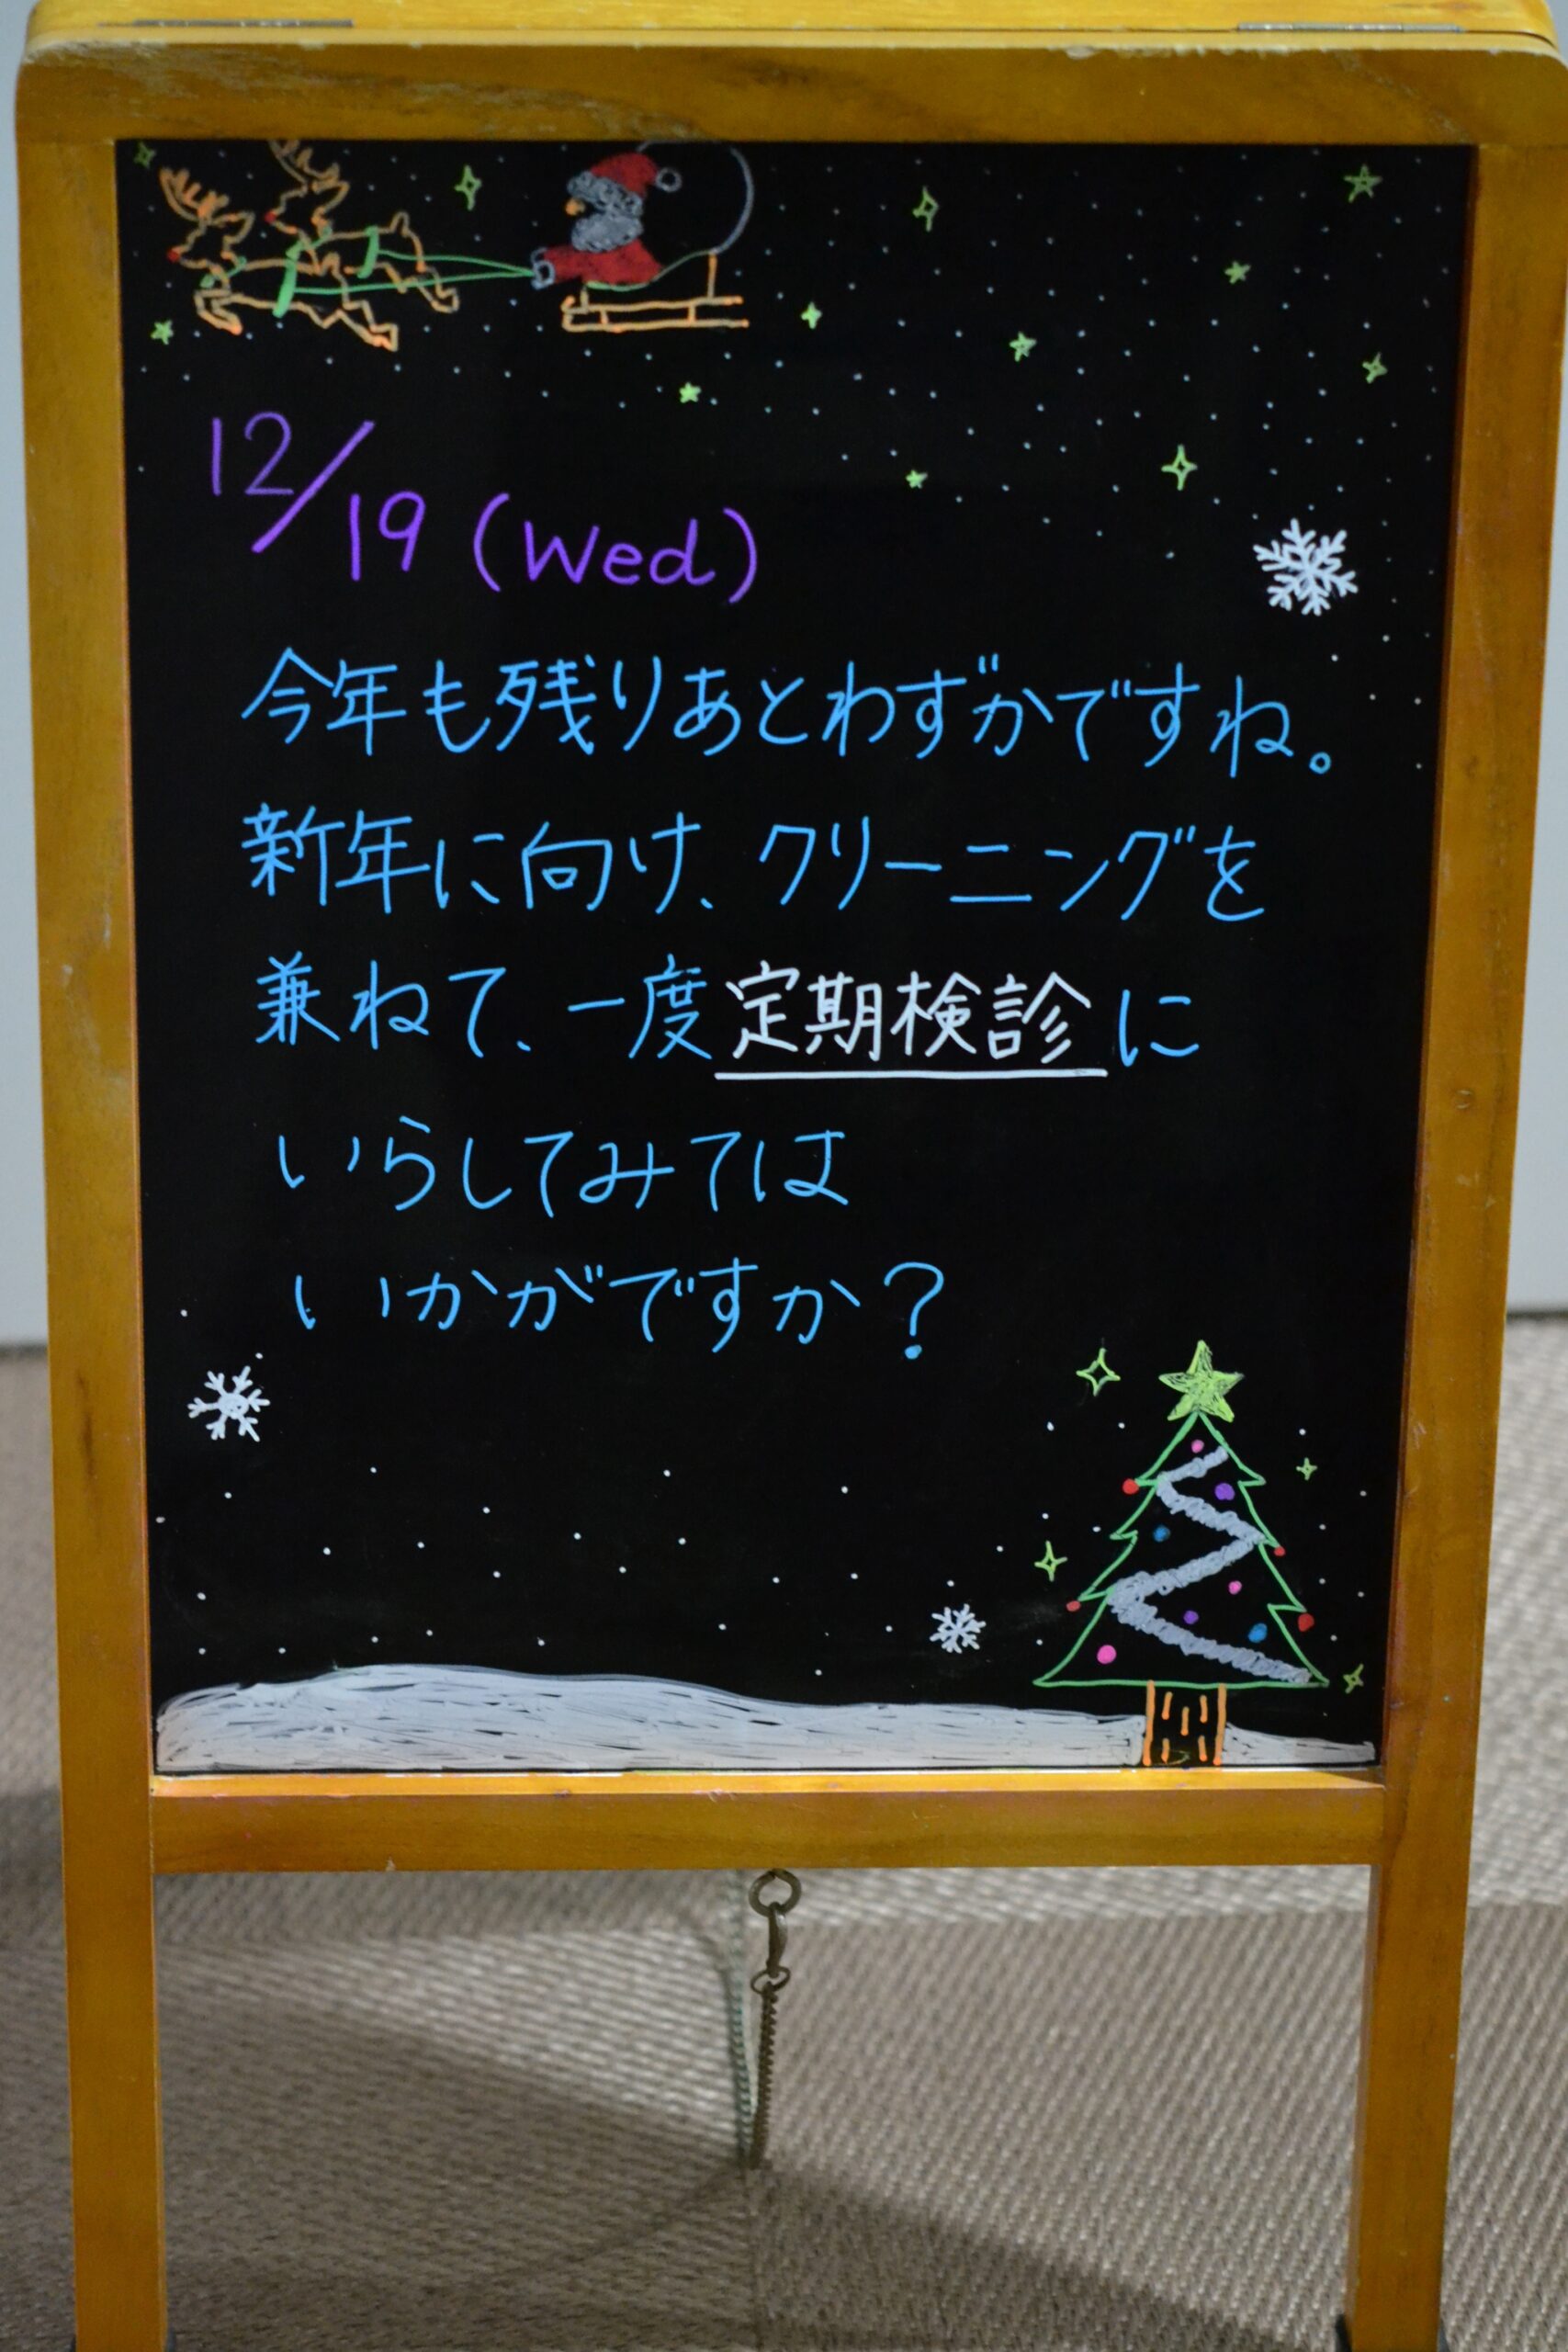 12/19 (Wed)
今年も残りあとわずかですね。
新年に向け、クリーニングを
兼ねて、一度定期検診に
いらしてみては
いかがですか?